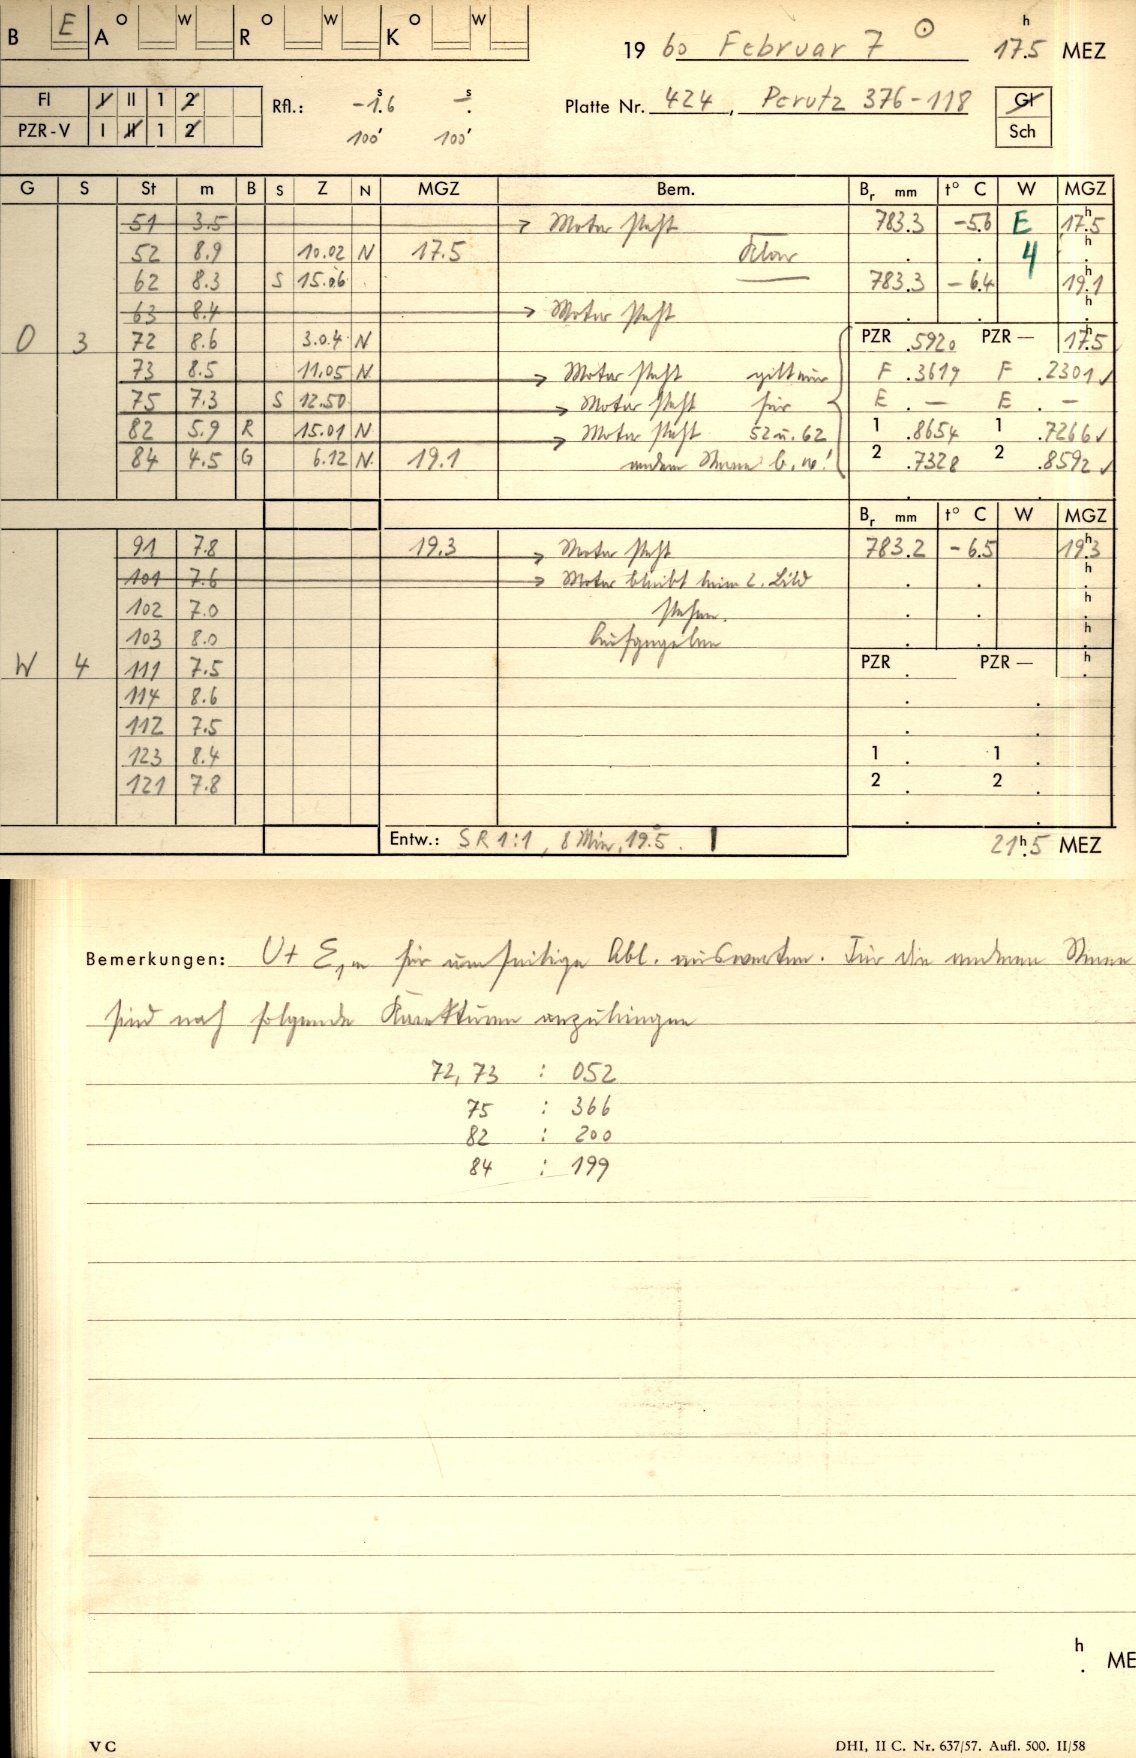 B E A O W R O W K O W
19 60 Februar 7 ☉ 17.5 h MEZ
Fl I II 1 2
PZR-V I II 1 2
Rfl.: -1.6 s - s
100' 100'
Platte Nr. 424, Perutz 376-118
Gl
Sch
G S St m B S Z N MGZ Bem. Br mm t° C W MGZ
51 3.5 → Motor steht 783.3 -5.6 E 17.5 h
52 8.9 10.02 N 17.5 Klar 4 h
62 8.3 S 15.06 783.3 -6.4 19.1 h
63 8.4 → Motor steht h
O 3 72 8.6 3.04 N PZR .5920 PZR— 17.5 h
73 8.5 11.05 N → Motor steht gilt nur F .3619 F .2301 ✓
75 7.3 S 12.50 → Motor steht für E . — E . —
82 5.9 R 15.01 N → Motor steht 52 u. 62 1 .8654 1 .7266 ✓
84 4.5 G 6.12 N 19.1 andere Sterne b.w.! 2 .7328 2 .8592 ✓
Br mm t° C W MGZ
91 7.8 19.3 → Motor steht 783.2 -6.5 19.3 h
101 7.6 → Motor bleibt beim 2. Bild h
102 7.0 stehen. h
103 8.0 Aufgegeben h
W 4 111 7.5 PZR PZR— h
114 8.6
112 7.5
123 8.4 1 1
121 7.8 2 2
Entw.: SR 1:1, 8 Min, 19.5° 21.5 h MEZ
Bemerkungen: U+ für umseitige Abl. auswerten. Für die anderen Sterne
sind noch folgende Korrekturen anzubringen
72, 73 : 052
75 : 366
82 : 200
84 : 199
h ME
V C DHI, II C. Nr. 637/57. Aufl. 500. II/58